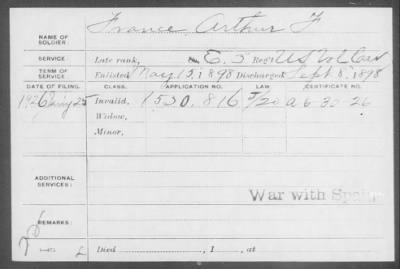 NAME OF SOLDIER: France, Arthur F
SERVICE Late rank, E. 3 Reg't US Vol Cav
TERM OF SERVICE Enlisted May 13, 1898 Discharged Sept 8, 1898
DATE OF FILING. CLASS. APPLICATION NO. LAW CERTIFICATE NO.
1926 25 Invalid, 1530.816 a 6-30-26
Widow,
Minor,
ADDITIONAL SERVICES:
War with
REMARKS:
Died , 1 , at